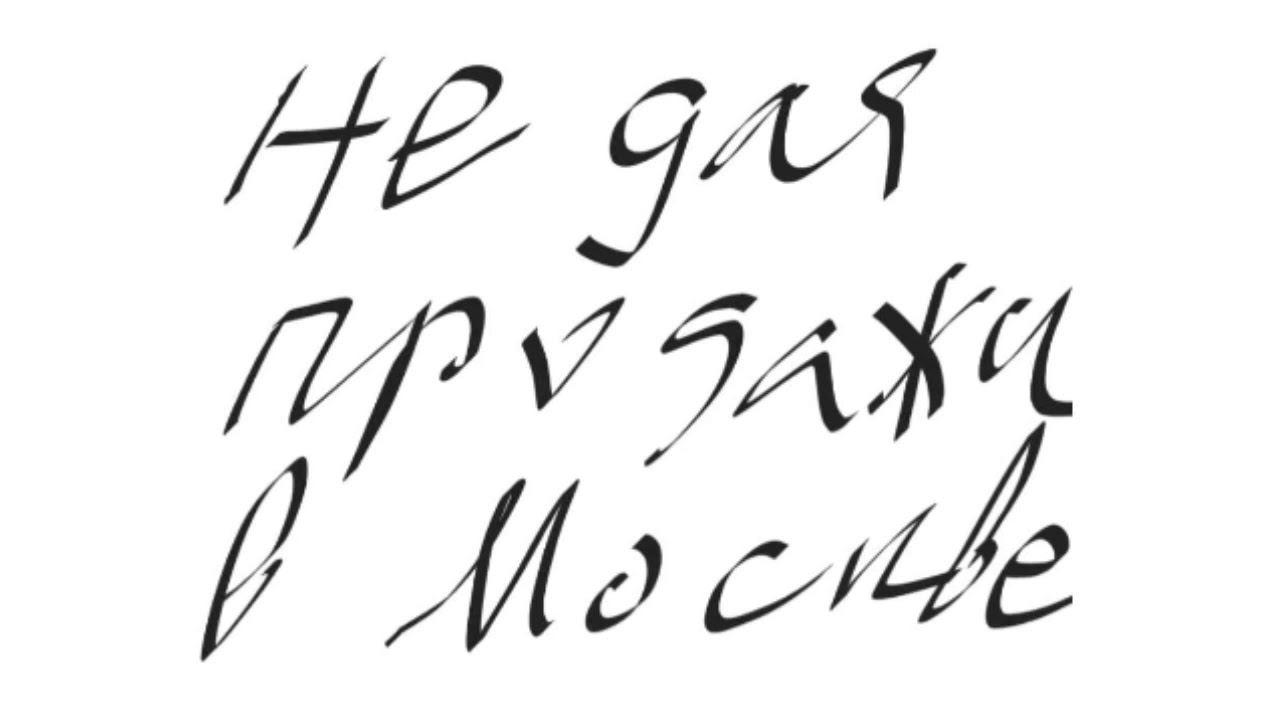 Не для
продажи
в Москве